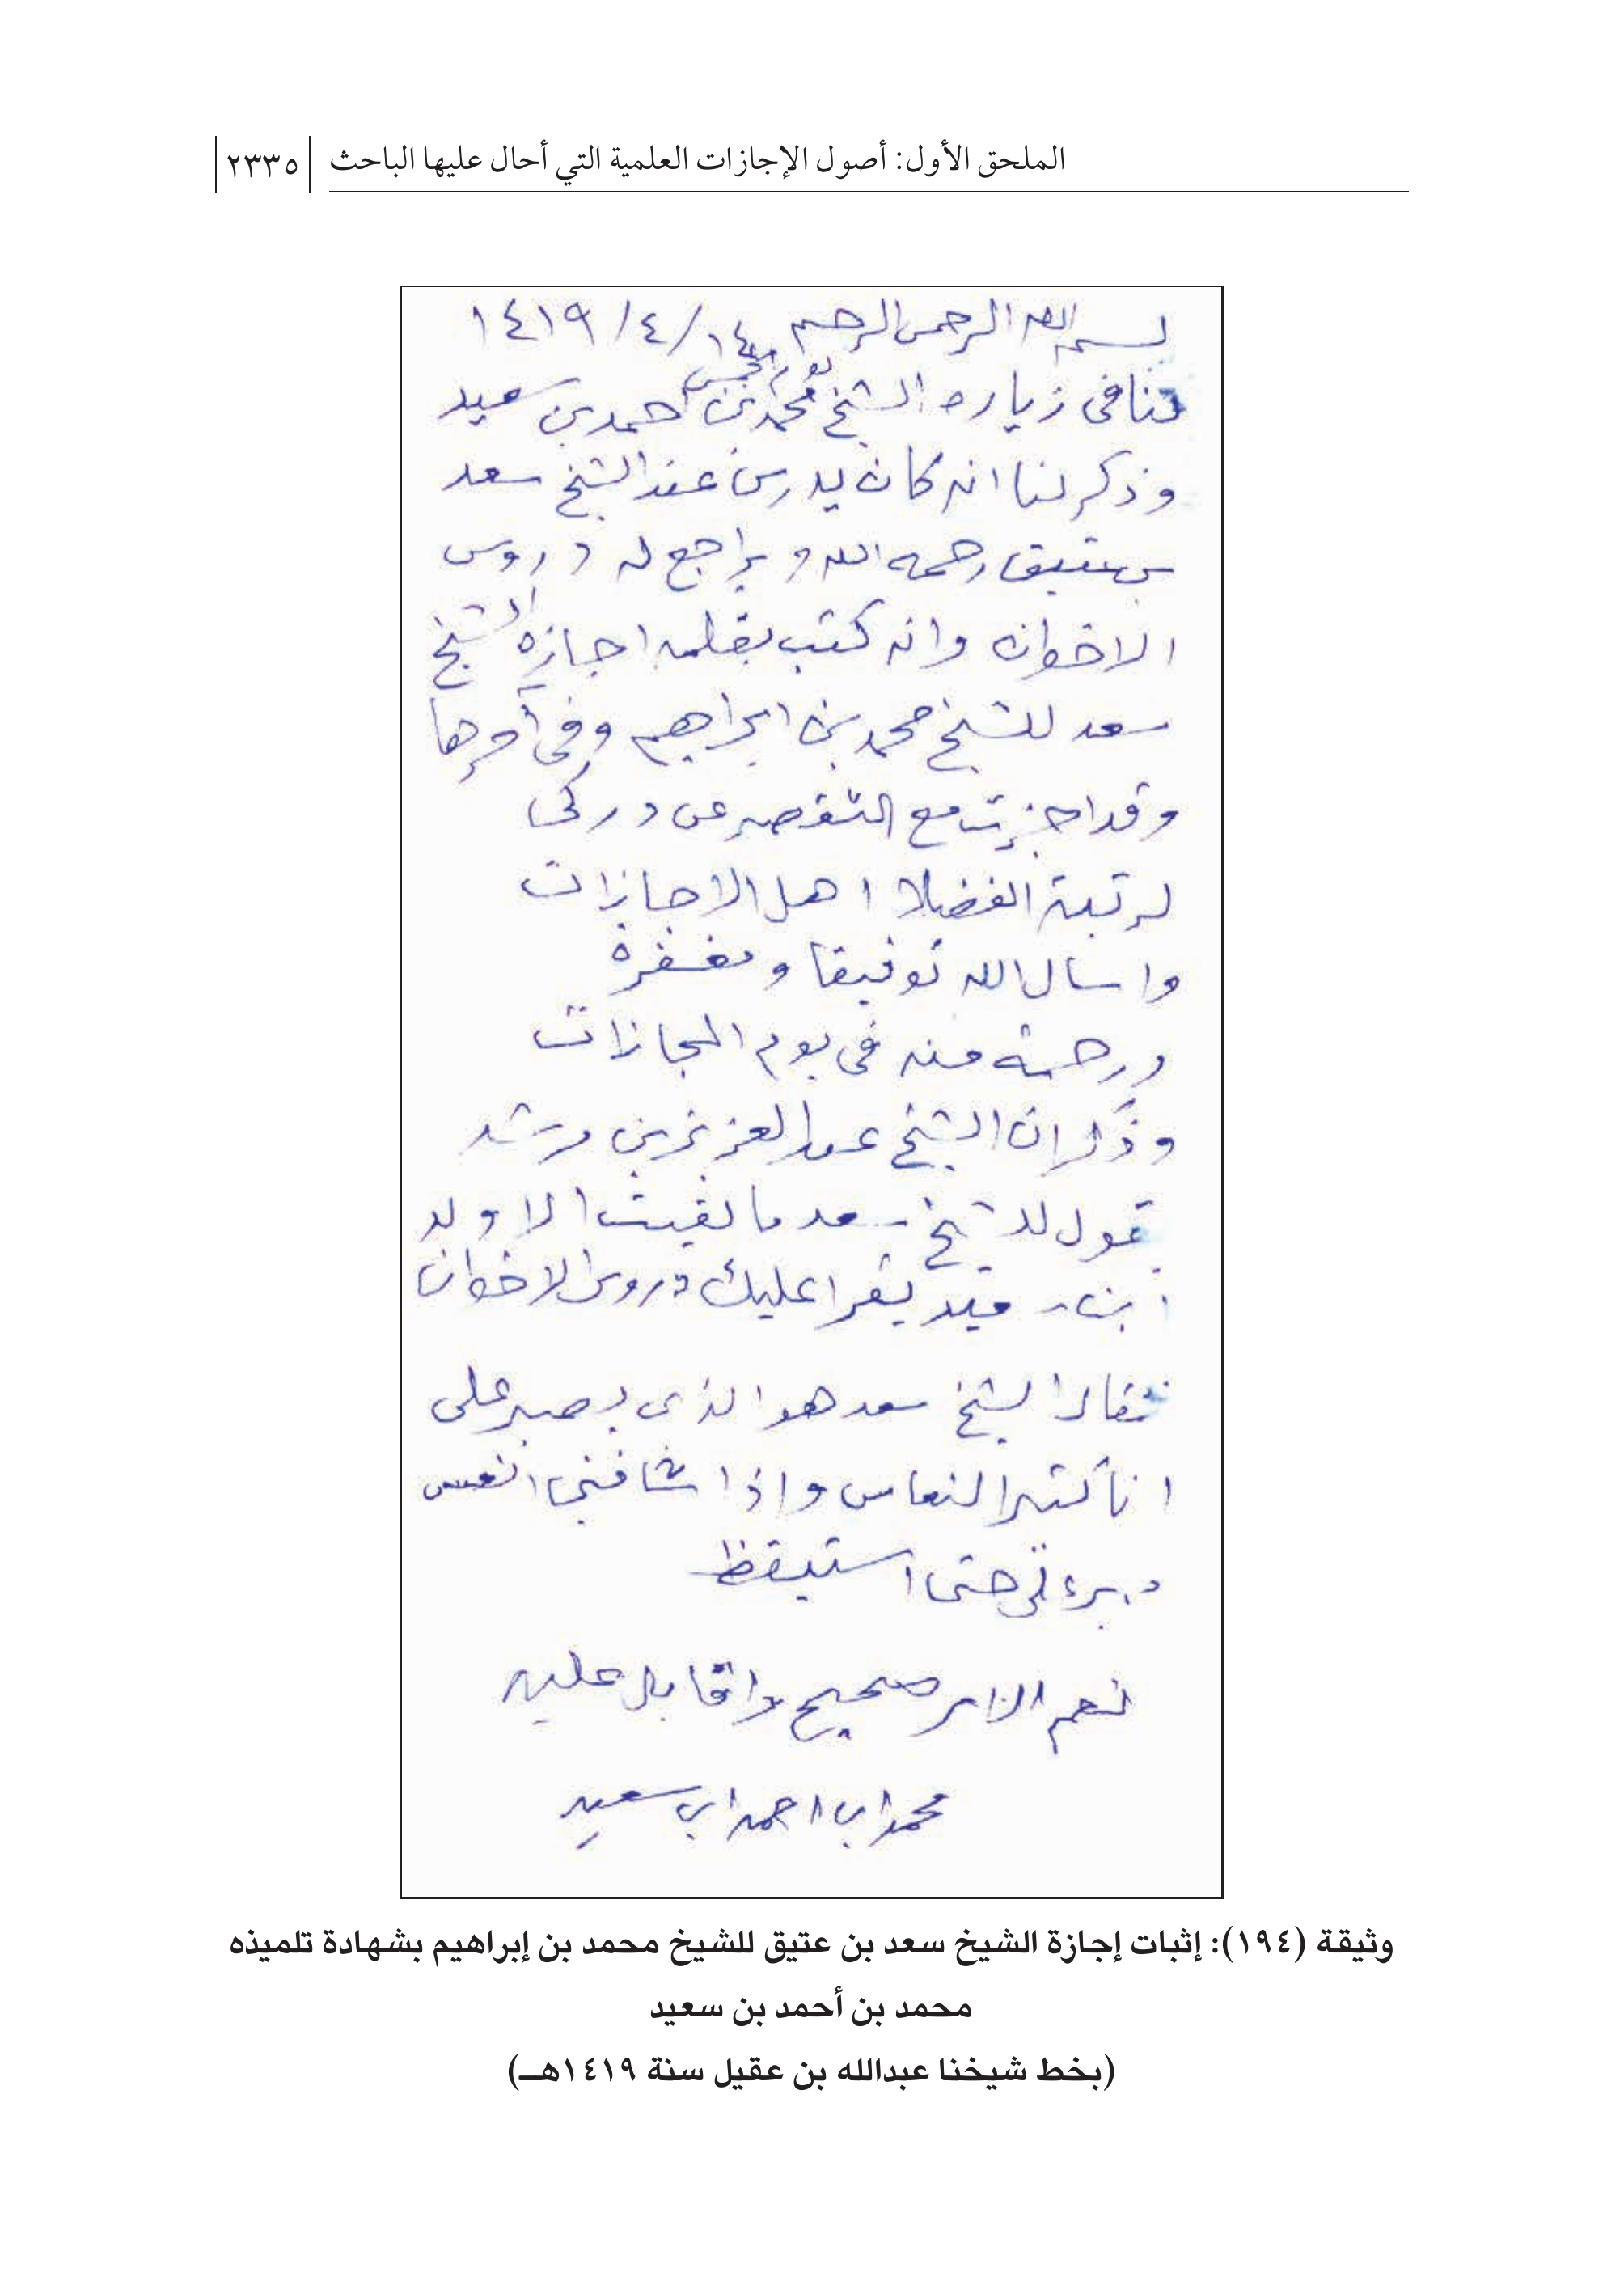 الملحق الأول: أصول الإجازات العلمية التي أحال عليها الباحث ٢٣٣٥
بسم الله الرحمن الرحيم ١٤/٤/١٤١٩
يوم الخميس
كنا في زيارة الشيخ محمد بن احمد بن سعيد
وذكر لنا انه كان يدرس عند الشيخ سعد
بن عتيق رحمه الله ويراجع له دروس
الاخوان وانه كتب بقلمه اجازة الشيخ
سعد للشيخ محمد بن ابراهيم وفي آخرها
وقد اجزت مع التقصير عن دركي
لرتبة الفضلا اهل الاجازات
واسال الله توفيقا ومغفرة
ورحمة منه في يوم المجازات
وذكر ان الشيخ عبدالعزيز بن مرشد
يقول للشيخ سعد ما لقيت الا ولد
ابن سعيد يقرا عليك دروس الاخوان
فقال الشيخ سعد هو الذي يصبر على
انا كثير النعاس واذا شافني انعس
حتى استيقظ
نعم الامر صحيح وانا عليه
محمد ابن احمد ابن سعيد
وثيقة (١٩٤): إثبات إجازة الشيخ سعد بن عتيق للشيخ محمد بن إبراهيم بشهادة تلميذه
محمد بن أحمد بن سعيد
(بخط شيخنا عبدالله بن عقيل سنة ١٤١٩هــ)